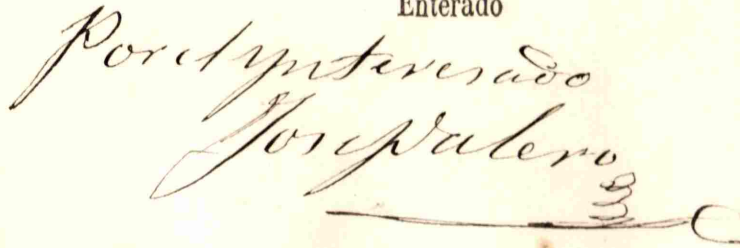 Enterado
Por el Ynteresado
Jose Valero